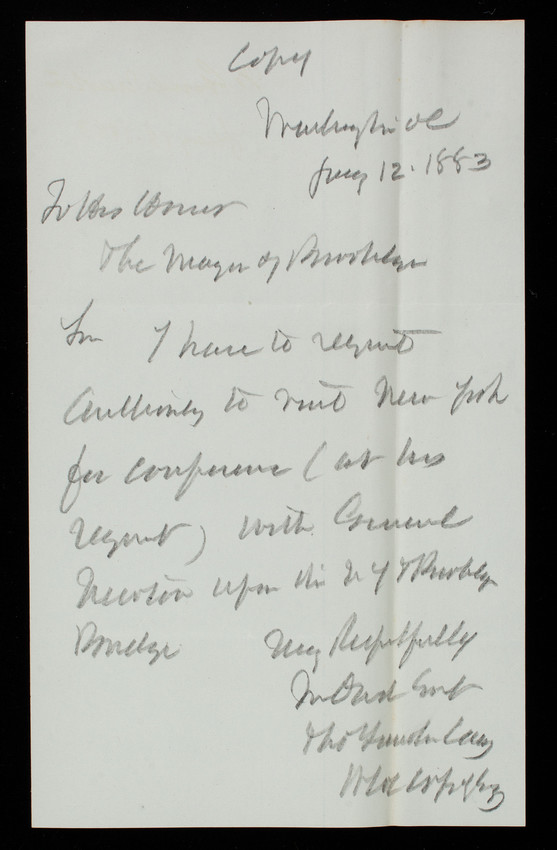 Copy
Washington DC
Jany 12. 1883
To His Honor
The Mayor of Brooklyn
Sir I have to request
authority to visit New York
for conference (at his
request) with General
Newton upon the N Y & Brooklyn
Bridge
Very Respectfully
Yr Obed Sert
Thos Lincoln Casey